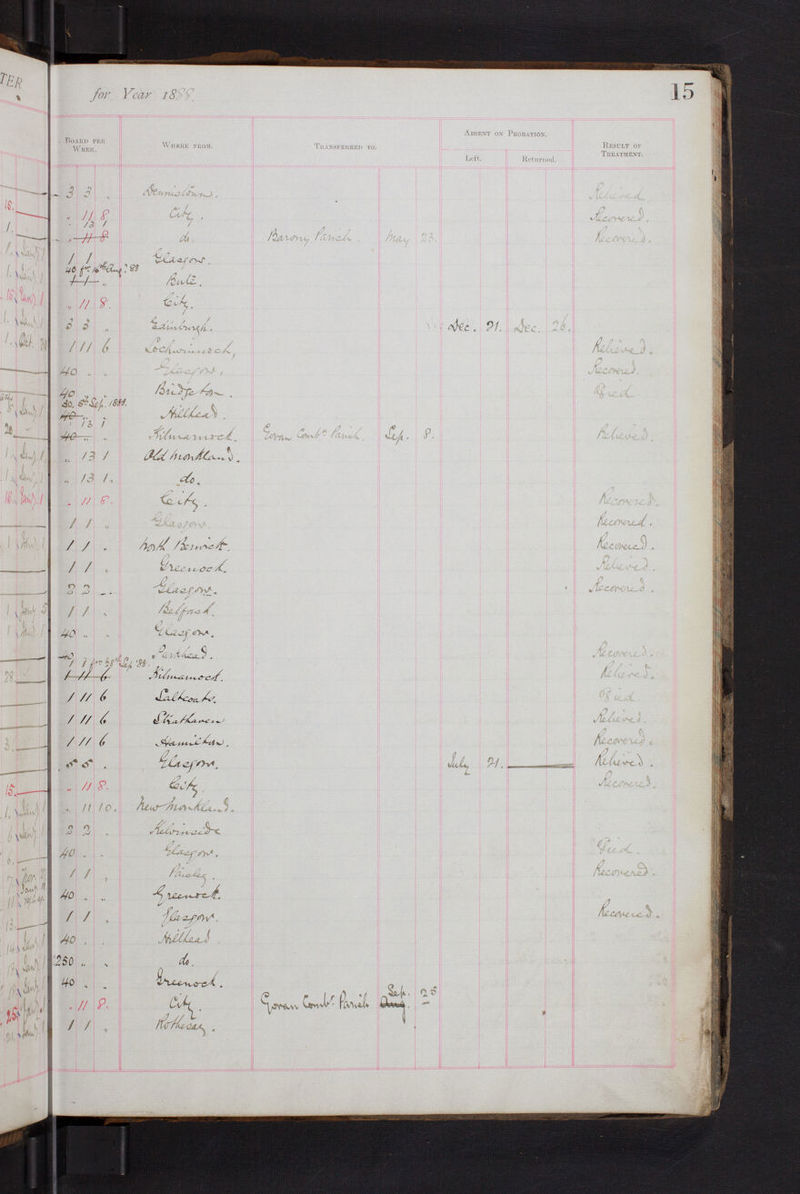 for Year 1888.
15
BOARD PER WEEK.
WHERE FROM.
TRANSFERRED TO.
ABSENT ON PROBATION.
Left.
Returned.
RESULT OF TREATMENT.
3 3 . Dennistoun. Relieved.
. 11 8 City. Recovered.
13 1
. 11 8 do. Barony Parish May 23. Recovered.
1 1 Glasgow.
40 fr 16th Aug. '88
1 1 . Bute.
. 11 8. City.
3 3 . Edinburgh. Dec. 21. Dec. 26.
1 11 6 Lochwinnoch, Relieved.
40 . . Glasgow, Recovered.
40 . . Bridgeton. Died
80, 8th Sep. 1888.
40 . . Hillhead.
13 1
40 . . Kilmarnock. Govan Combn Parish. Sep. 8. Relieved.
. 13 1 Old Monkland.
. 13 1. do.
. 11 8. City. Recovered.
1 1 . Glasgow. Recovered.
1 1 . North Berwick. Recovered.
1 1 . Greenock. Relieved.
2 2 . Glasgow. Recovered.
1 1 . Belfast.
40 . . Glasgow.
40 Parkhead. Recovered.
1 1 fr 28th Sep '88.
1 11 6 Kilmarnock. Relieved.
1 11 6 Saltcoats. Died
1 11 6 Strathaven Relieved.
1 11 6 Hamilton. Recovered.
5 5 . Glasgow. July 21. Relieved.
. 11 8. City. Recovered.
. 11 10. New Monkland.
2 2 . Kelvinside
40 . . Glasgow. Died.
1 1 . Paisley. Recovered.
40 . . Greenock.
1 1 . Glasgow. Recovered.
40 . . Hillhead
250 . . do.
40 . . Greenock.
. 11 8. City. Govan Combn Parish Aug. Sep. 28
1 1 . Rothesay.